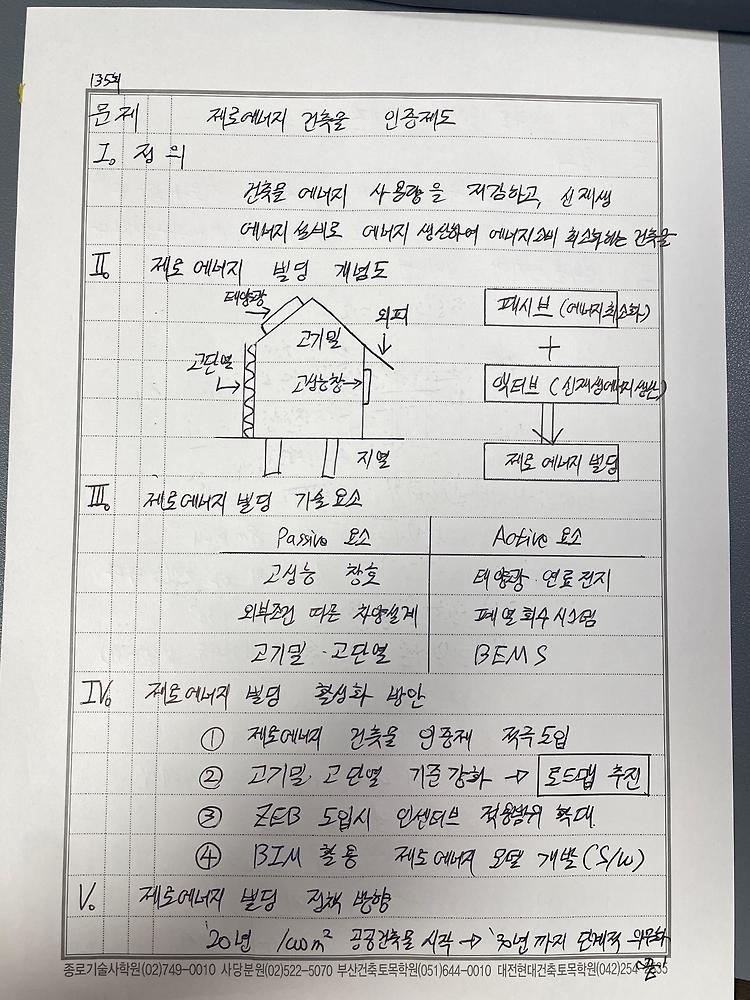 135회
문제 제로에너지 건축물 인증제도
I. 정의
건축물 에너지 사용량을 저감하고, 신재생
에너지 설비로 에너지 생산하여 에너지소비 최소화하는 건축물
II. 제로에너지 빌딩 개념도
태양광
고기밀
외피
고단열
고성능창
지열
패시브 (에너지최소화)
+
액티브 (신재생에너지생산)
제로에너지 빌딩
III. 제로에너지 빌딩 기술요소
Passive 요소 Active 요소
고성능 창호 태양광·연료전지
외부조건 따른 차양설계 폐열회수시스템
고기밀·고단열 BEMS
IV. 제로에너지 빌딩 활성화 방안
① 제로에너지 건축물 인증제 적극도입
② 고기밀·고단열 기준강화 → 로드맵 추진
③ ZEB 도입시 인센티브 적용범위 확대
④ BIM 활용 제로에너지 모델 개발(S/W)
V. 제로에너지 빌딩 정책 방향
'20년 1000m² 공공건축물 시작 → '30년까지 단계적 의무화
"끝"
종로기술사학원(02)749-0010 사당분원(02)522-5070 부산건축토목학원(051)644-0010 대전현대건축토목학원(042)254-